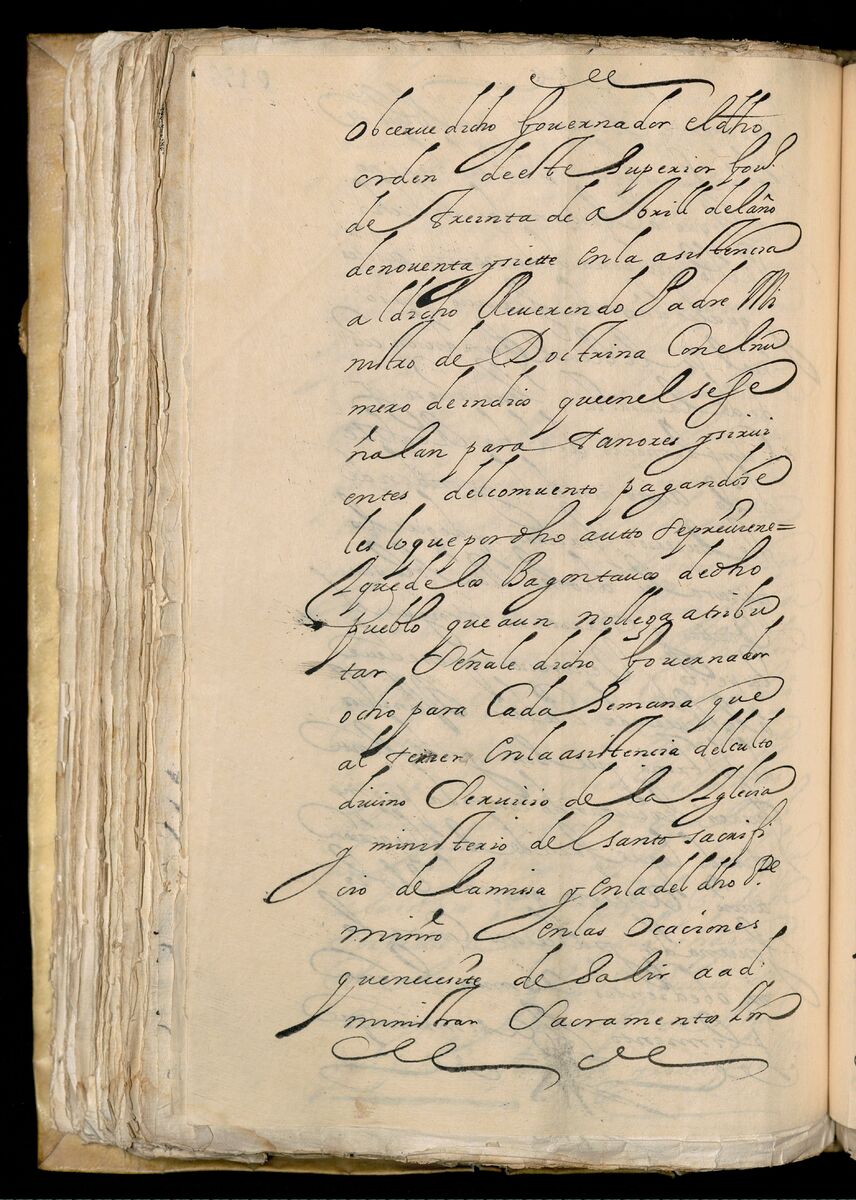 obcerue dicho Gouernador el dho
orden de este Superior Gou.
de treinta de Abrill del año
de nouenta y siette en la asistencia
al dicho Reuerendo Padre Mi
nistro de Doctrina Con el nu
mero de indios que en el se se
ñalan para tanores y siruí
entes del comuento pagandose
les lo que por dho autto se preuiene=
Y que de los Bagontaos de dho
Pueblo que aun no llega a tribu
tar Señale dicho Gouernador
ocho para Cada Semana que
al en la asistencia del culto
diuino Seruicio de la Iglecia
y ministerio del santo sacrifi
cio de la missa y en la del dho Pe.
minro en las ocaciones
que necesite de Salir a ad
ministrar Sacramentos Yor